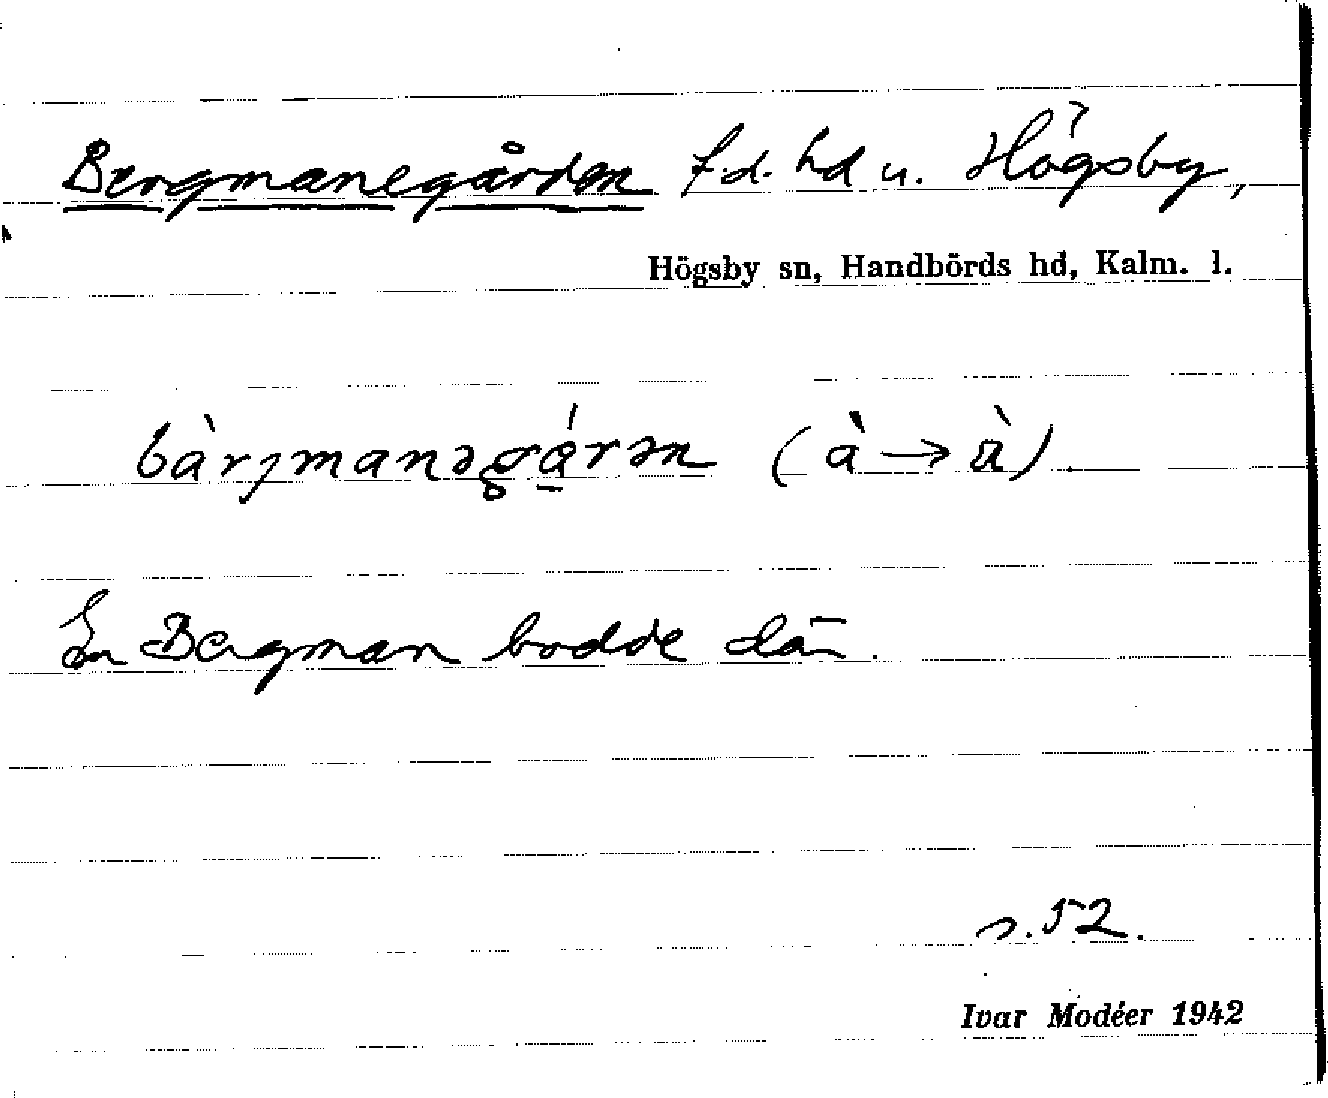 Bergmanegården f.d. hd u. Högsby,
Högsby sn, Handbörds hd, Kalm. l.
bàrjmanəgá̱rən (à → ä̀).
En Bergman bodde där.
s. 52.
Ivar Modéer 1942